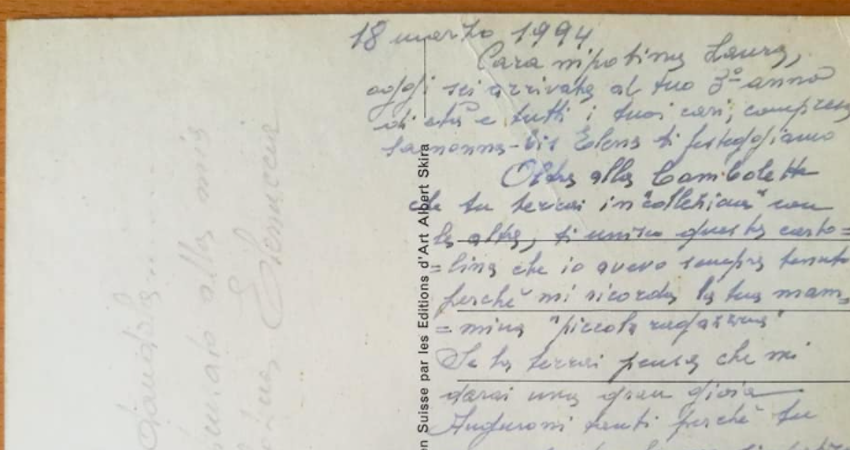 18 marzo 1994
Cara nipotina Laura,
oggi sei arrivata al tuo 3º anno
di età e tutti i tuoi cari, compresa
la nonna-bis Elena ti festeggiamo
Oltre alla bambolett
che tu terrai in "collezione" con
le altre, ti unisco questa carto=
=lina che io avevo sempre tenuto
perchè mi ricorda la tua mam=
=mina "piccola ragazzina"
Se la terrai pensa che mi
darai una gran gioia
Auguroni tanti perchè tu
en Suisse par les Editions d'Art Albert Skira
alla mia